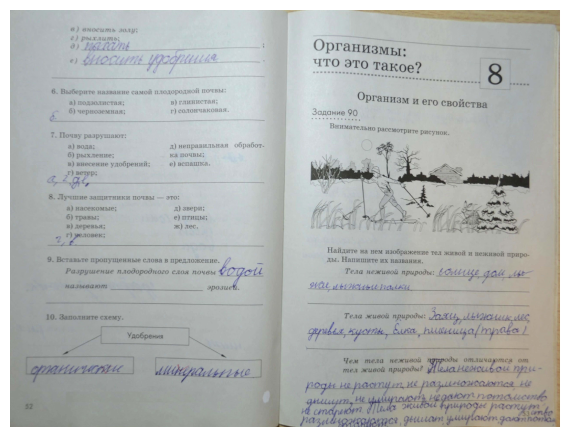 в) вносить золу;
г) рыхлить;
д) пахать ;
е) вносить удобрения .
6. Выберите название самой плодородной почвы:
а) подзолистая; в) глинистая;
б) черноземная; г) солончаковая.
б
7. Почву разрушают:
а) вода; д) неправильная обработ-
б) рыхление; ка почвы;
в) внесение удобрений; е) вспашка.
г) ветер;
а, г, д,
8. Лучшие защитники почвы — это:
а) насекомые; д) звери;
б) травы; е) птицы;
в) деревья; ж) лес,
г) человек;
9. Вставьте пропущенные слова в предложение.
Разрушение плодородного слоя почвы водой
называют эрозией.
10. Заполните схему.
Удобрения
органические минеральные
52
Организмы:
что это такое?
8
Организм и его свойства
Задание 90
Внимательно рассмотрите рисунок.
Найдите на нем изображение тел живой и неживой приро-
ды. Напишите их названия.
Тела неживой природы: солнце, дом, лы-
жи, лыжные палки
Тела живой природы: Заяц, лыжник, лес,
деревья, кусты, ёлка, пшеница (трава)
Чем тела неживой природы отличаются от
тел живой природы? Тела неживой при-
роды не растут, не размножаются, не
дышат, не умирают, не дают потомство,
не стареют. Тела живой природы растут,
размножаются, дышат умирают дают потом